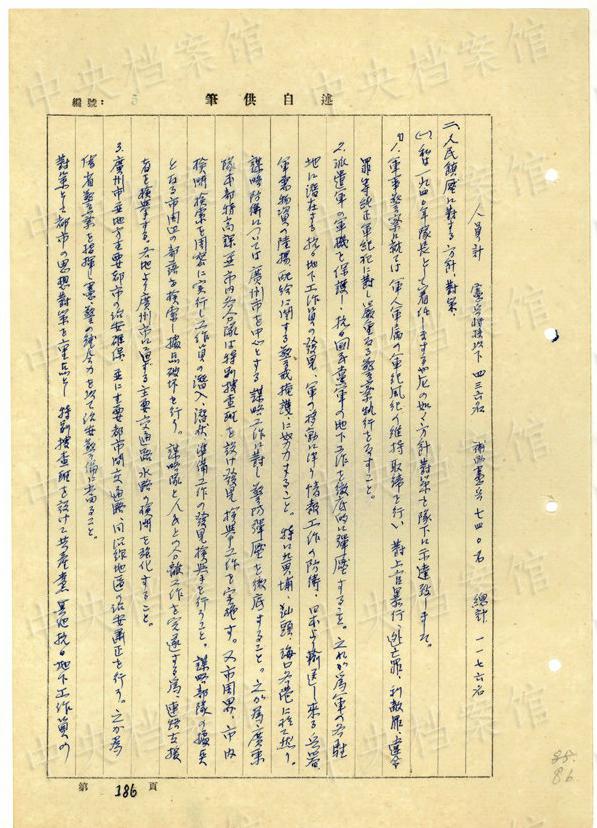 編號: 5
述自供筆
人員計 憲兵將校以下 四三六名 補助憲兵 七四〇名 總計 一一七六名
二、人民鎮壓に對する方針、對策
(一) 私は一九四〇年隊長として着任しますや左の如く方針對策を隊下に示達致しました。
1. 軍事警察に就ては 軍人軍屬の軍紀風紀の維持取締を行い 對上官暴行、逃亡罪、利敵罪、違令
罪等純正軍紀犯に對し嚴重なる警察執行をなすこと。
2. 派遣軍の軍機を保護し、抗日國民黨軍の地下工作を徹底的に彈壓すること。之れが為軍の各駐
地に潜在する抗日地下工作員の發見、軍の移動に伴う情報工作の防衛、日本より輸送し來る兵器、
軍需物資の陸揚、配給に關する警戒掩護に努力すること。特に黄埔、汕頭、海口各港に於て然り。
謀略防衛については 廣州市を中心とする 謀略工作に對し警防彈壓を徹底すること。之が為、廣東
隊本部特高課並市内各分隊は特別捜査班を設け發見、檢擧工作を實施す。又市周界、市内
檢問檢索を周密に実行し工作員の潜入、潜伏、準備工作の發見檢擧を行うこと。謀略部隊の據点
となる市周辺の部落を檢索し據点破壊を行う。謀略隊と人民との分離工作を完遂する為、連絡支援
者を檢擧する。各地より廣州市に通ずる主要交通路水路の檢問を強化すること。
3. 廣州市並地方主要都市の治安確保 並に主要都市間交通路、同沿線地區の治安肅正を行う。之が為
偽省警察を指揮し憲警の總合力を以て治安警備に当ること。
對策として都市の思想對策を重点とし 特別捜査班を設けて共産黨 其他抗日地下工作員の
第 186 頁
88.
86